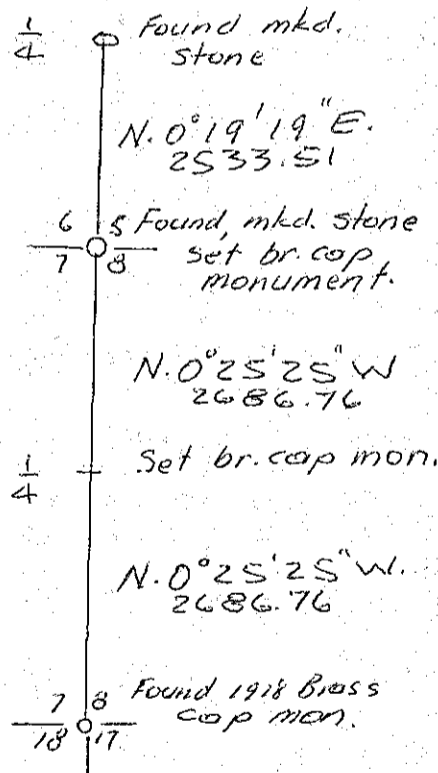 1/4 Found mkd.
stone
N. 0°19'19" E.
2533.51
6 5 Found, mkd. stone
7 8 set br. cap
monument.
N. 0°25'25" W
2686.76
1/4 Set br. cap mon.
N. 0°25'25" W.
2686.76
7 8 Found 1918 Brass
18 17 cap mon.